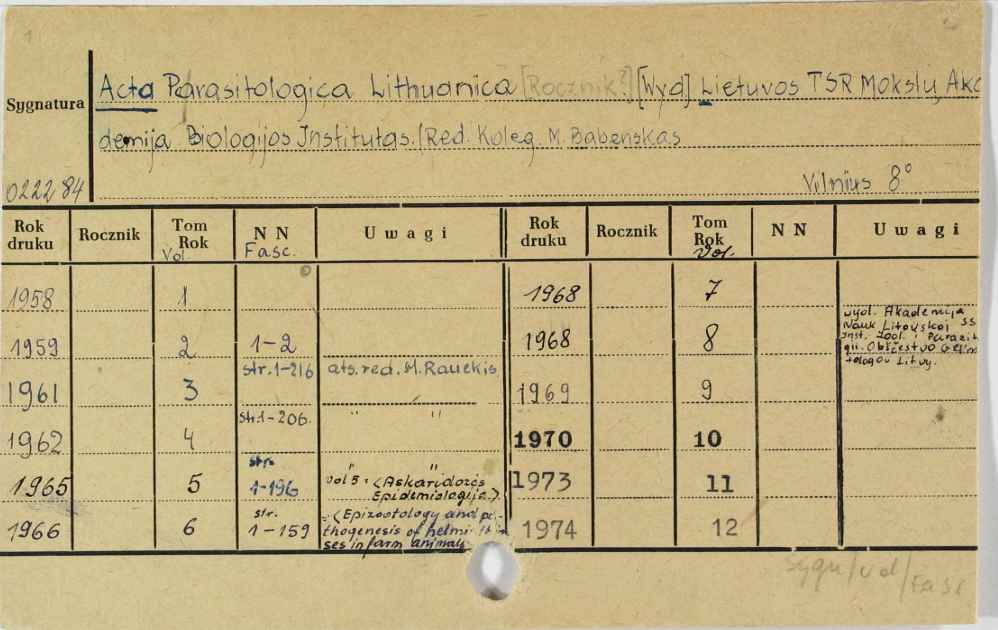 1
Acta Parasitologica Lithuanica [Rocznik?] [Wyd] Lietuvos TSR Mokslų Aka
Sygnatura
demija Biologijos Institutas. [Red. Koleg. M. Babenskas
022284
Vilnius 8°
Rok druku Rocznik Tom Rok Vol. NN Fasc. Uwagi Rok druku Rocznik Tom Rok Vol. NN Uwagi
1958 1 1968 7
1959 2 1-2 1968 8 wyd. Akademija
Nauk Litovskoj SS
Inst. Zool. i Parazit
gii. Obščestvo Gelm
tologov Litvy.
1961 3 str. 1-216 ats. red. M. Rauckis 1969 9
1962 4 str. 1-206. " " 1970 10
1965 5 str. 1-196 " " vol 5: (Askaridozės
Epidemiologija.) 1973 11
1966 6 str. 1-159 (Epizootology and pa-
thogenesis of helminthia
ses in farm animals 1974 12
sygn/vol/Fasc